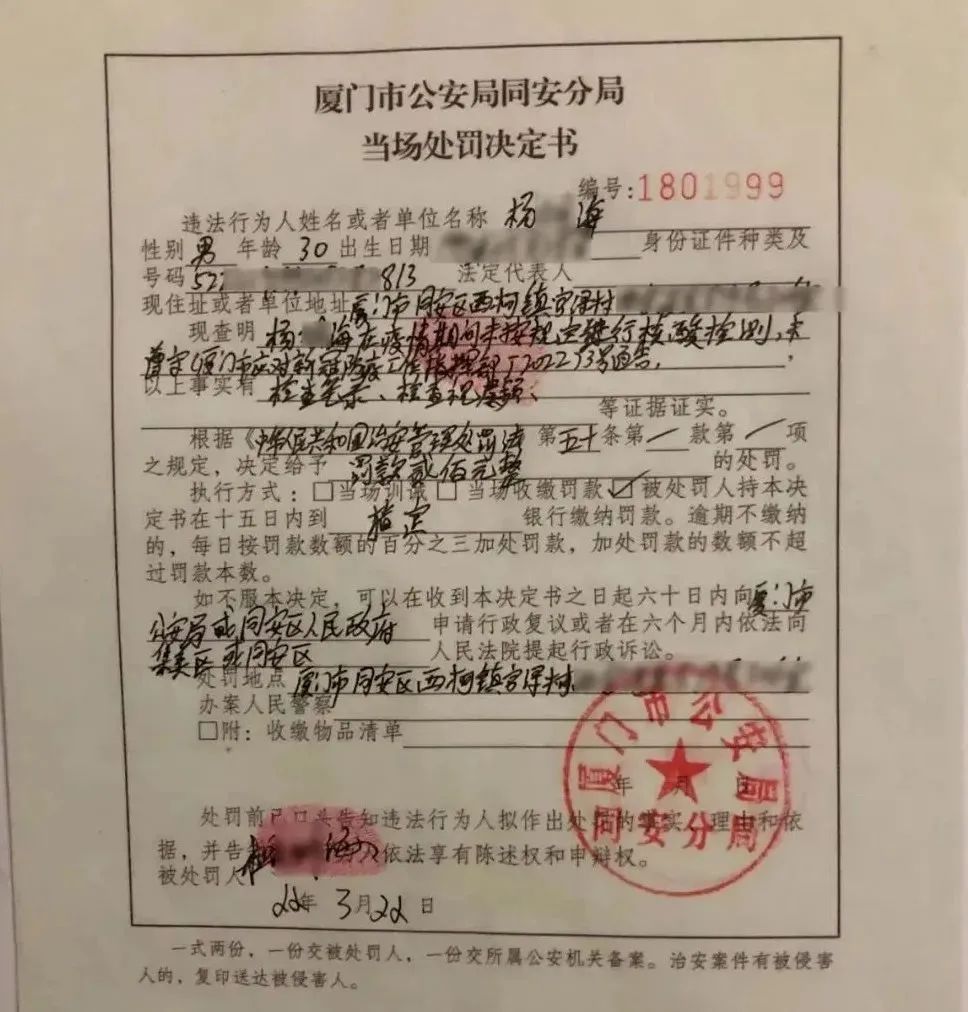 厦门市公安局同安分局
当场处罚决定书
编号:1801999
违法行为人姓名或者单位名称 杨 海
性别 男 年龄 30 出生日期 身份证件种类及
号码 52 813 法定代表人
现住址或者单位地址 厦门市同安区西柯镇官浔村
现查明 杨 海在疫情期间未按规定进行核酸检测,未
遵守《厦门市应对新冠防疫工作指挥部》2022 号通告,
以上事实有 检查笔录、检查视频
等证据证实。
根据《中华人民共和国治安管理处罚法 第五十条第一款第一项
之规定,决定给予 罚款贰佰元整 的处罚。
执行方式:□当场训诫□ 当场收缴罚款☑被处罚人持本决
定书在十五日内到 指定 银行缴纳罚款。逾期不缴纳
的,每日按罚款数额的百分之三加处罚款,加处罚款的数额不超
过罚款本数。
如不服本决定,可以在收到本决定书之日起六十日内向 厦门市
公安局或同安区人民政府 申请行政复议或者在六个月内依法向
集美区或同安区 人民法院提起行政诉讼。
处罚地点 厦门市同安区西柯镇官浔村
办案人民警察
□附:收缴物品清单
年 月 日
厦门市公安局
同安分局
处罚前已口头告知违法行为人拟作出处罚的事实、理由和依
据,并告 人依法享有陈述权和申辩权。
被处罚人 杨 海
22年 3月22日
一式两份,一份交被处罚人,一份交所属公安机关备案。治安案件有被侵害
人的,复印送达被侵害人。